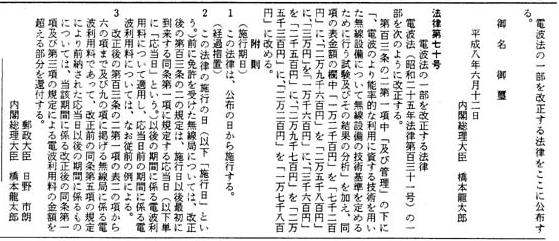 電波法の一部を改正する法律をここに公布す
る。
御名御璽
平成八年六月十二日
内閣総理大臣 橋本龍太郎
法律第七十号
電波法の一部を改正する法律
電波法（昭和二十五年法律第百三十一号）の一
部を次のように改正する。
第百三条の二第一項中「及び管理」の下に
「、電波のより能率的な利用に資する技術を用い
た無線設備について無線設備の技術基準を定める
ために行う試験及びその結果の分析」を加え、同
項の表金額の欄中「一万二千百円」を「七千二百
円」に、「二万九千六百円」を「二万五千八百円」
円」に改める。
附則
（施行期日）
1 この法律は、公布の日から施行する。
（経過措置）
2 この法律の施行の日（以下「施行日」とい
う。）前に免許を受けた無線局については、改正
後の第百三条の二の規定は、施行日以後最初に
到来する同条第一項に規定する応当日（以下単
に「応当日」という。）以後の期間に係る電波利
用料について適用し、応当日前の期間に係る電
波利用料については、なお従前の例による。
3 改正後の第百三条の二第一項の表二の項から
六の項まで及び九の項に掲げる無線局に係る電
波利用料であって、改正前の同条第五項の規定
により前納された応当日以後の期間に係るもの
については、当該期間に係る改正後の同条第一
項及び第三項の規定による電波利用料の金額を
超える部分を還付する。
郵政大臣 日野市朗
内閣総理大臣 橋本龍太郎